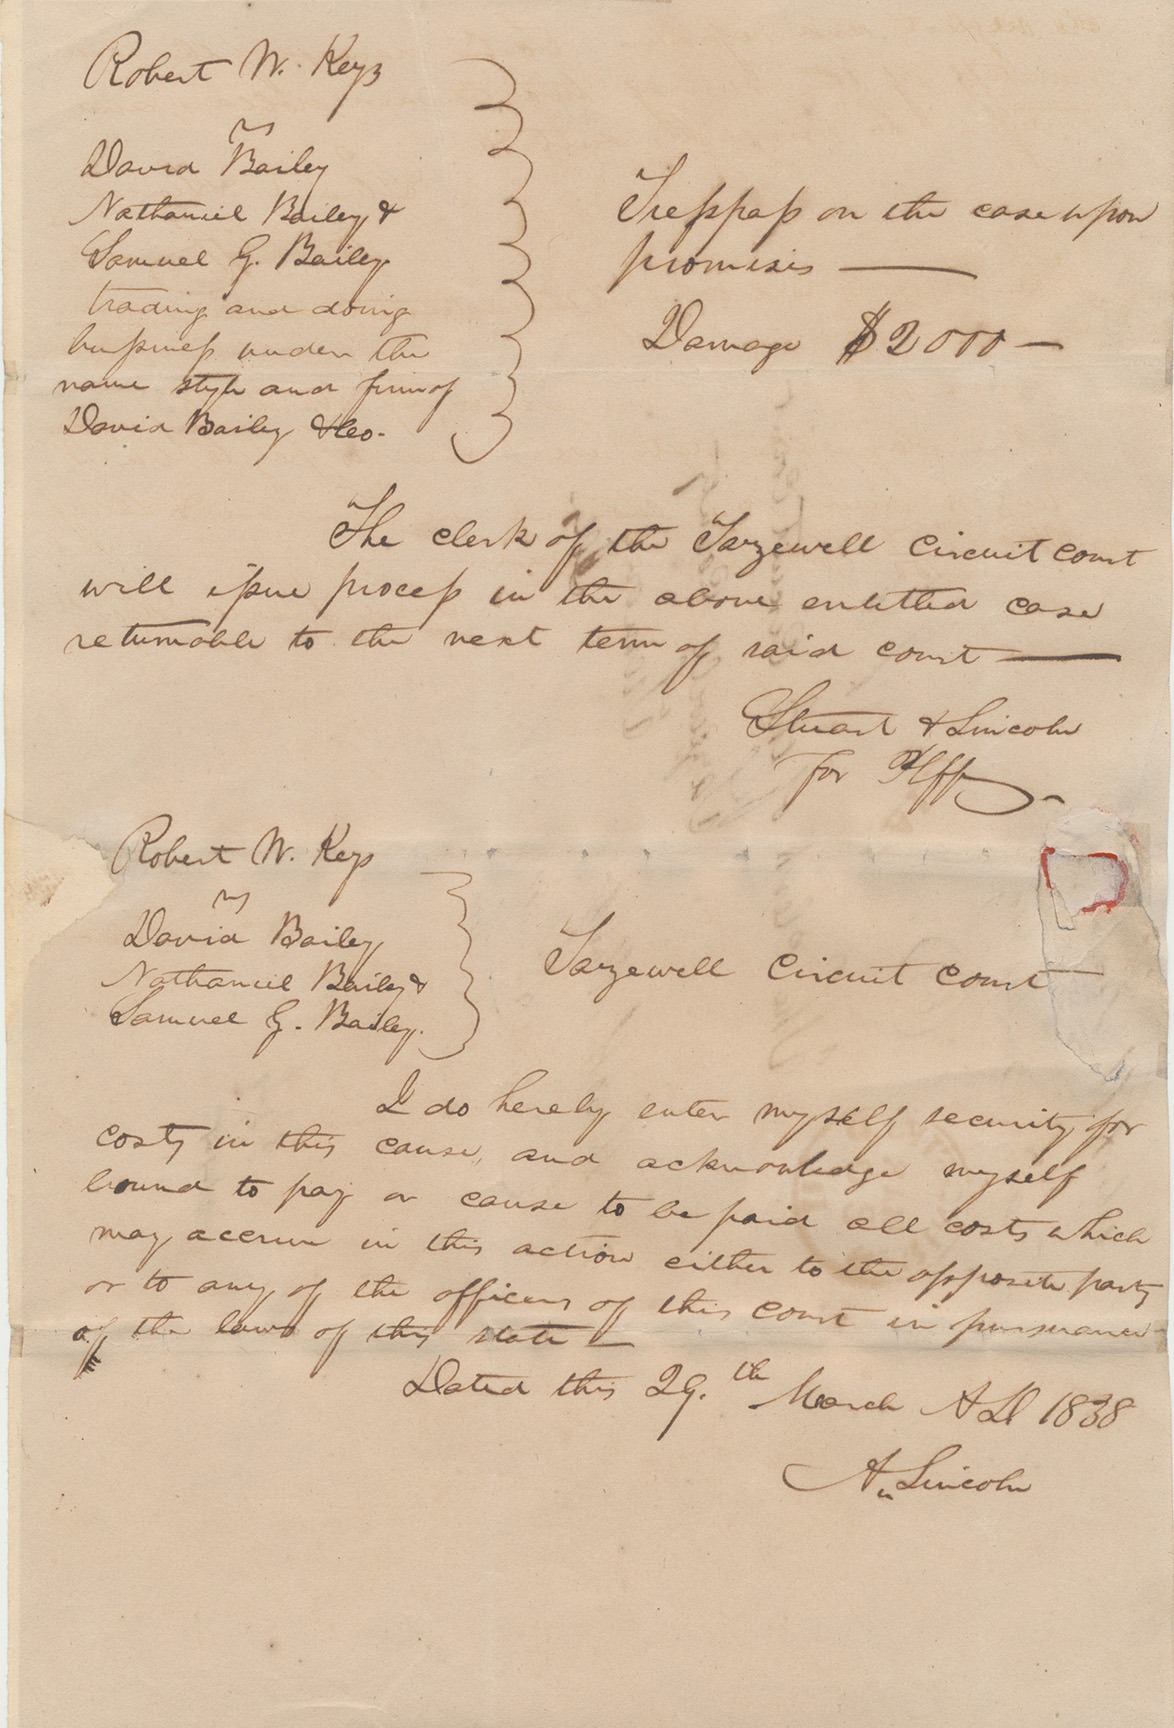 Robert W. Keys
vs
David Bailey
Nathaniel Bailey &
Samuel G. Bailey
trading and doing
business under the
name style and firm of
David Bailey & Co.
Tresspass on the case upon
promises —
Damage $2000 —
The clerk of the Tazewell circuit court
will issue process in the above entitled case
returnable to the next term of said court —
Stuart & Lincoln
for Plff
Robert W. Keys
vs
David Bailey
Nathaniel Bailey &
Samuel G. Bailey.
Tazewell circuit court
I do hereby enter myself security for
costs in this cause, and acknowledge myself
bound to pay or cause to be paid all costs which
may accrue in this action either to the opposite party
or to any of the officers of this court in pursuance
of the laws of this state —
Dated this 29.th March A D 1838
A. Lincoln